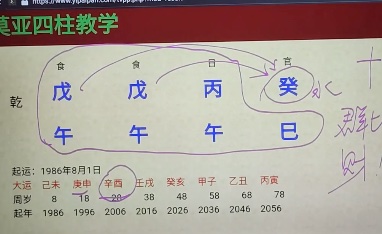 莫亚四柱教学
食 食 日 官
乾 戊 戊 丙 癸 水
午 午 午 巳
起运：1986年8月1日
大运 己未 庚申 辛酉 壬戌 癸亥 甲子 乙丑 丙寅
周岁 8 18 28 38 48 58 68 78
起年 1986 1996 2006 2016 2026 2036 2046 2056